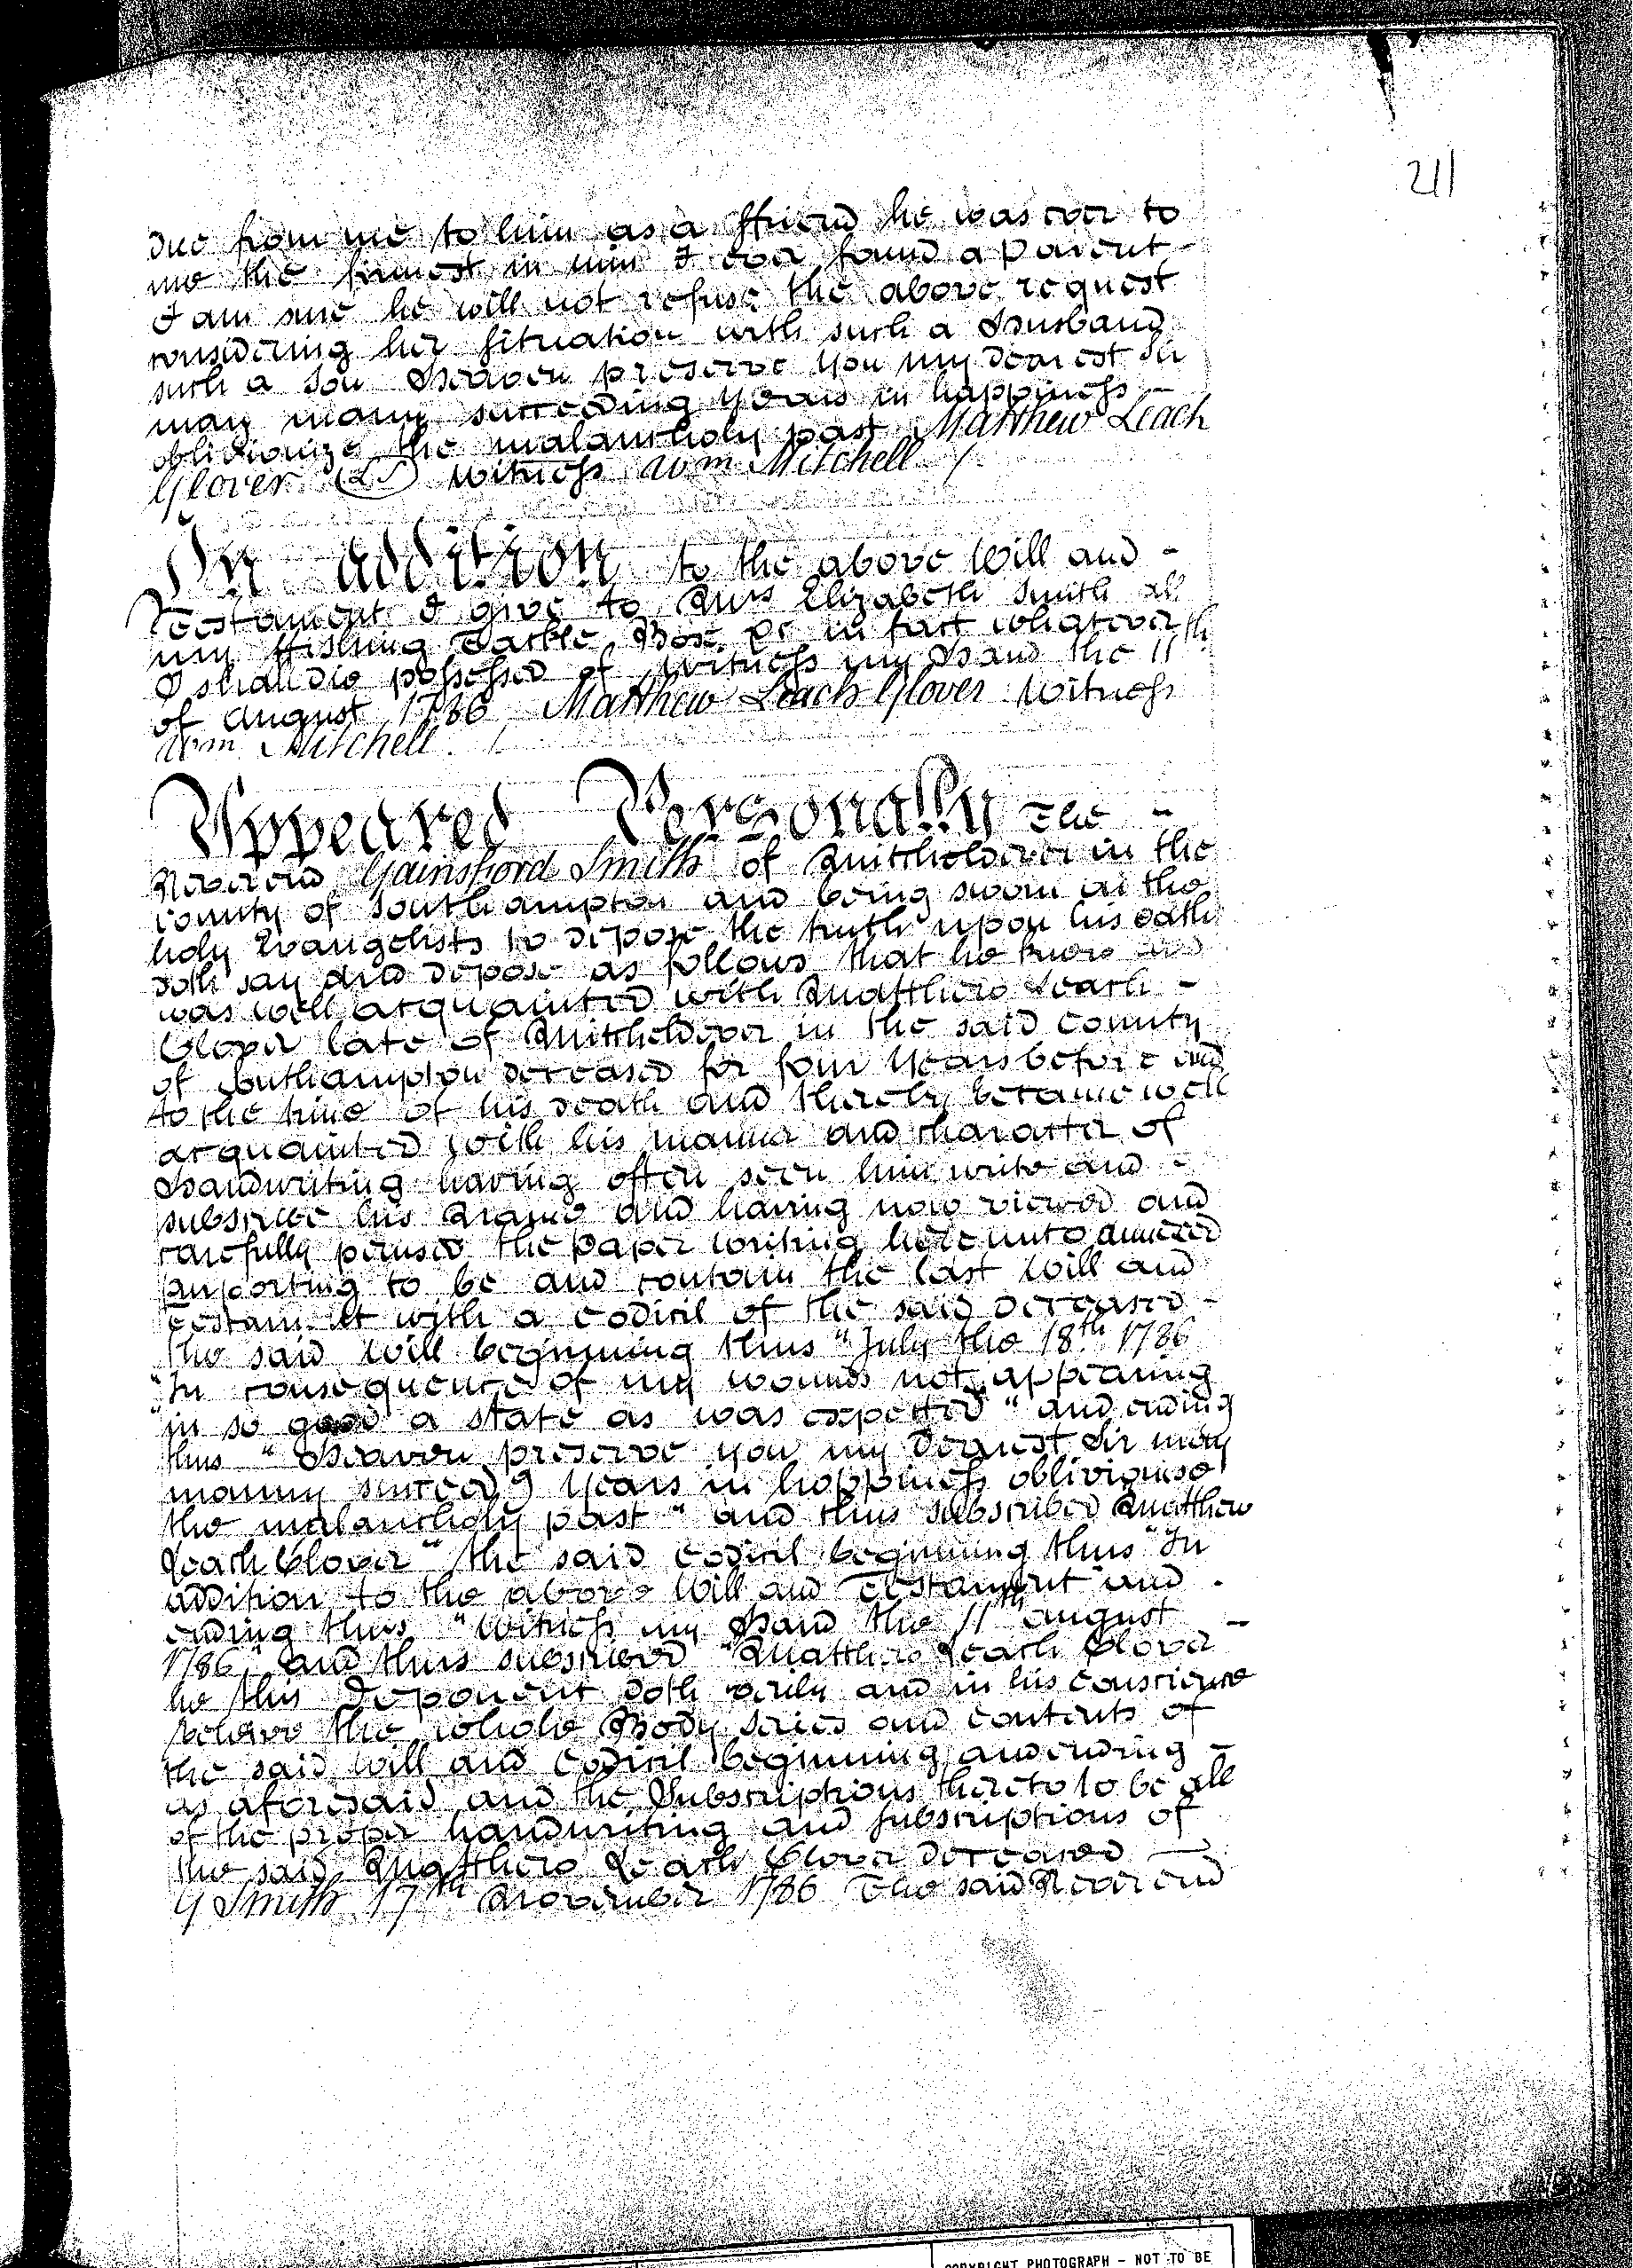 211
due from me to him as a ffriend he was ever to
me the firmest in him I ever found a Parent -
I am sure he will not refuse the above request
considering her situation with such a Husband
such a Son Heaven preserve you my dearest Sir
may many succeeding Years in happiness -
oblivionize the malancholy past Matthew Leach
Glover (LS) Witness Wm Mitchell /.
In addition to the above Will and -
Testament I give to Mrs Elizabeth Smith all
my ffishing Tackle, Box &c in fact whatever
I shall die possessed of Witness my Hand the 11th
of August 1786 Matthew Leach Glover Witness
Wm Mitchell /
Appeared Personally The -
Reverend Gainsford Smith of Mitcheldever in the
County of Southampton and being sworn on the
holy Evangelists to depose the truth upon his oath
doth say and depose as follows that he knew and
was well acquainted with Matthew Leach -
Glover late of Mitcheldever in the said County
of Southampton deceased for four Years before and
to the time of his death and thereby became well
acquainted with his manner and character of
Handwriting having often seen him write and -
subscribe his Name and having now viewed and
carefully perused the paper writing hereunto annexed
purporting to be and contain the last Will and
Testament with a Codicil of the said deceased -
the said Will beginning thus "July the 18th 1786
"In consequence of my wounds not appearing
"in so good a state as was expected" and ending
thus "Heaven preserve you my Dearest Sir may
many succeedg Years in happiness oblivionise
the malancholy past" and thus subscribed Matthew
Leach Glover" the said Codicil beginning thus "In
addition to the above Will and Testament" and .
ending thus "Witness my Hand the 11th August -
1786," and thus subscribed "Matthew Leach Glover -
he this Deponent doth verily and in his Conscience
believe the whole Body series and contents of
the said Will and Codicil beginning and ending -
as aforesaid and the Subscriptions thereto to be all
of the proper handwriting and subscriptions of
the said Matthew Leach Glover deceased -
G Smith 17th November 1786 The said Reverend
COPYRIGHT PHOTOGRAPH - NOT TO BE